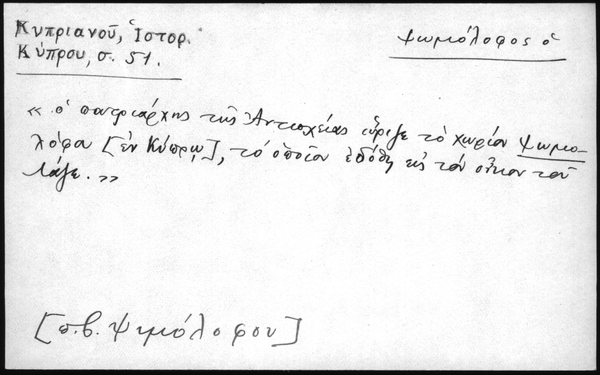 Κυπριανοῦ, Ἱστορ.
Κύπρου, σ. 51.
ψωμόλοφος ὁ
« ὁ πατριάρχης τῆς Ἀντιοχείας ὥριζε τὸ χωρίον Ψωμο-
λόφα [ἐν Κύπρῳ], τὸ ὁποῖον ἐδόθη εἰς τὸν οἶκον τοῦ
»
[π.β. Ψημόλοφου]